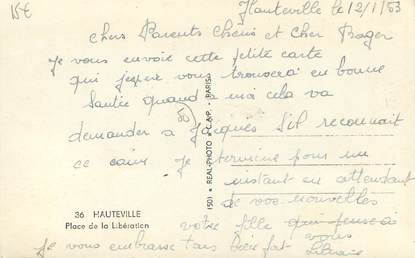 15€
Hauteville le 12/1/53
chers Parents Cheris et Cher Roger
Je vous envoie cette petite carte
qui j'espere vous trouvera en bonne
Santée quand a moi cela va
demander a Jacques S'il reconnait
ce coin Je termine pour un
instant en attendant
de vos nouvelles
votre fille qui pense a
vous
je vous embrasse tous bien fort
(50) ★ REAL-PHOTO ★ C.A.P. - PARIS
36 HAUTEVILLE
Place de la Libération